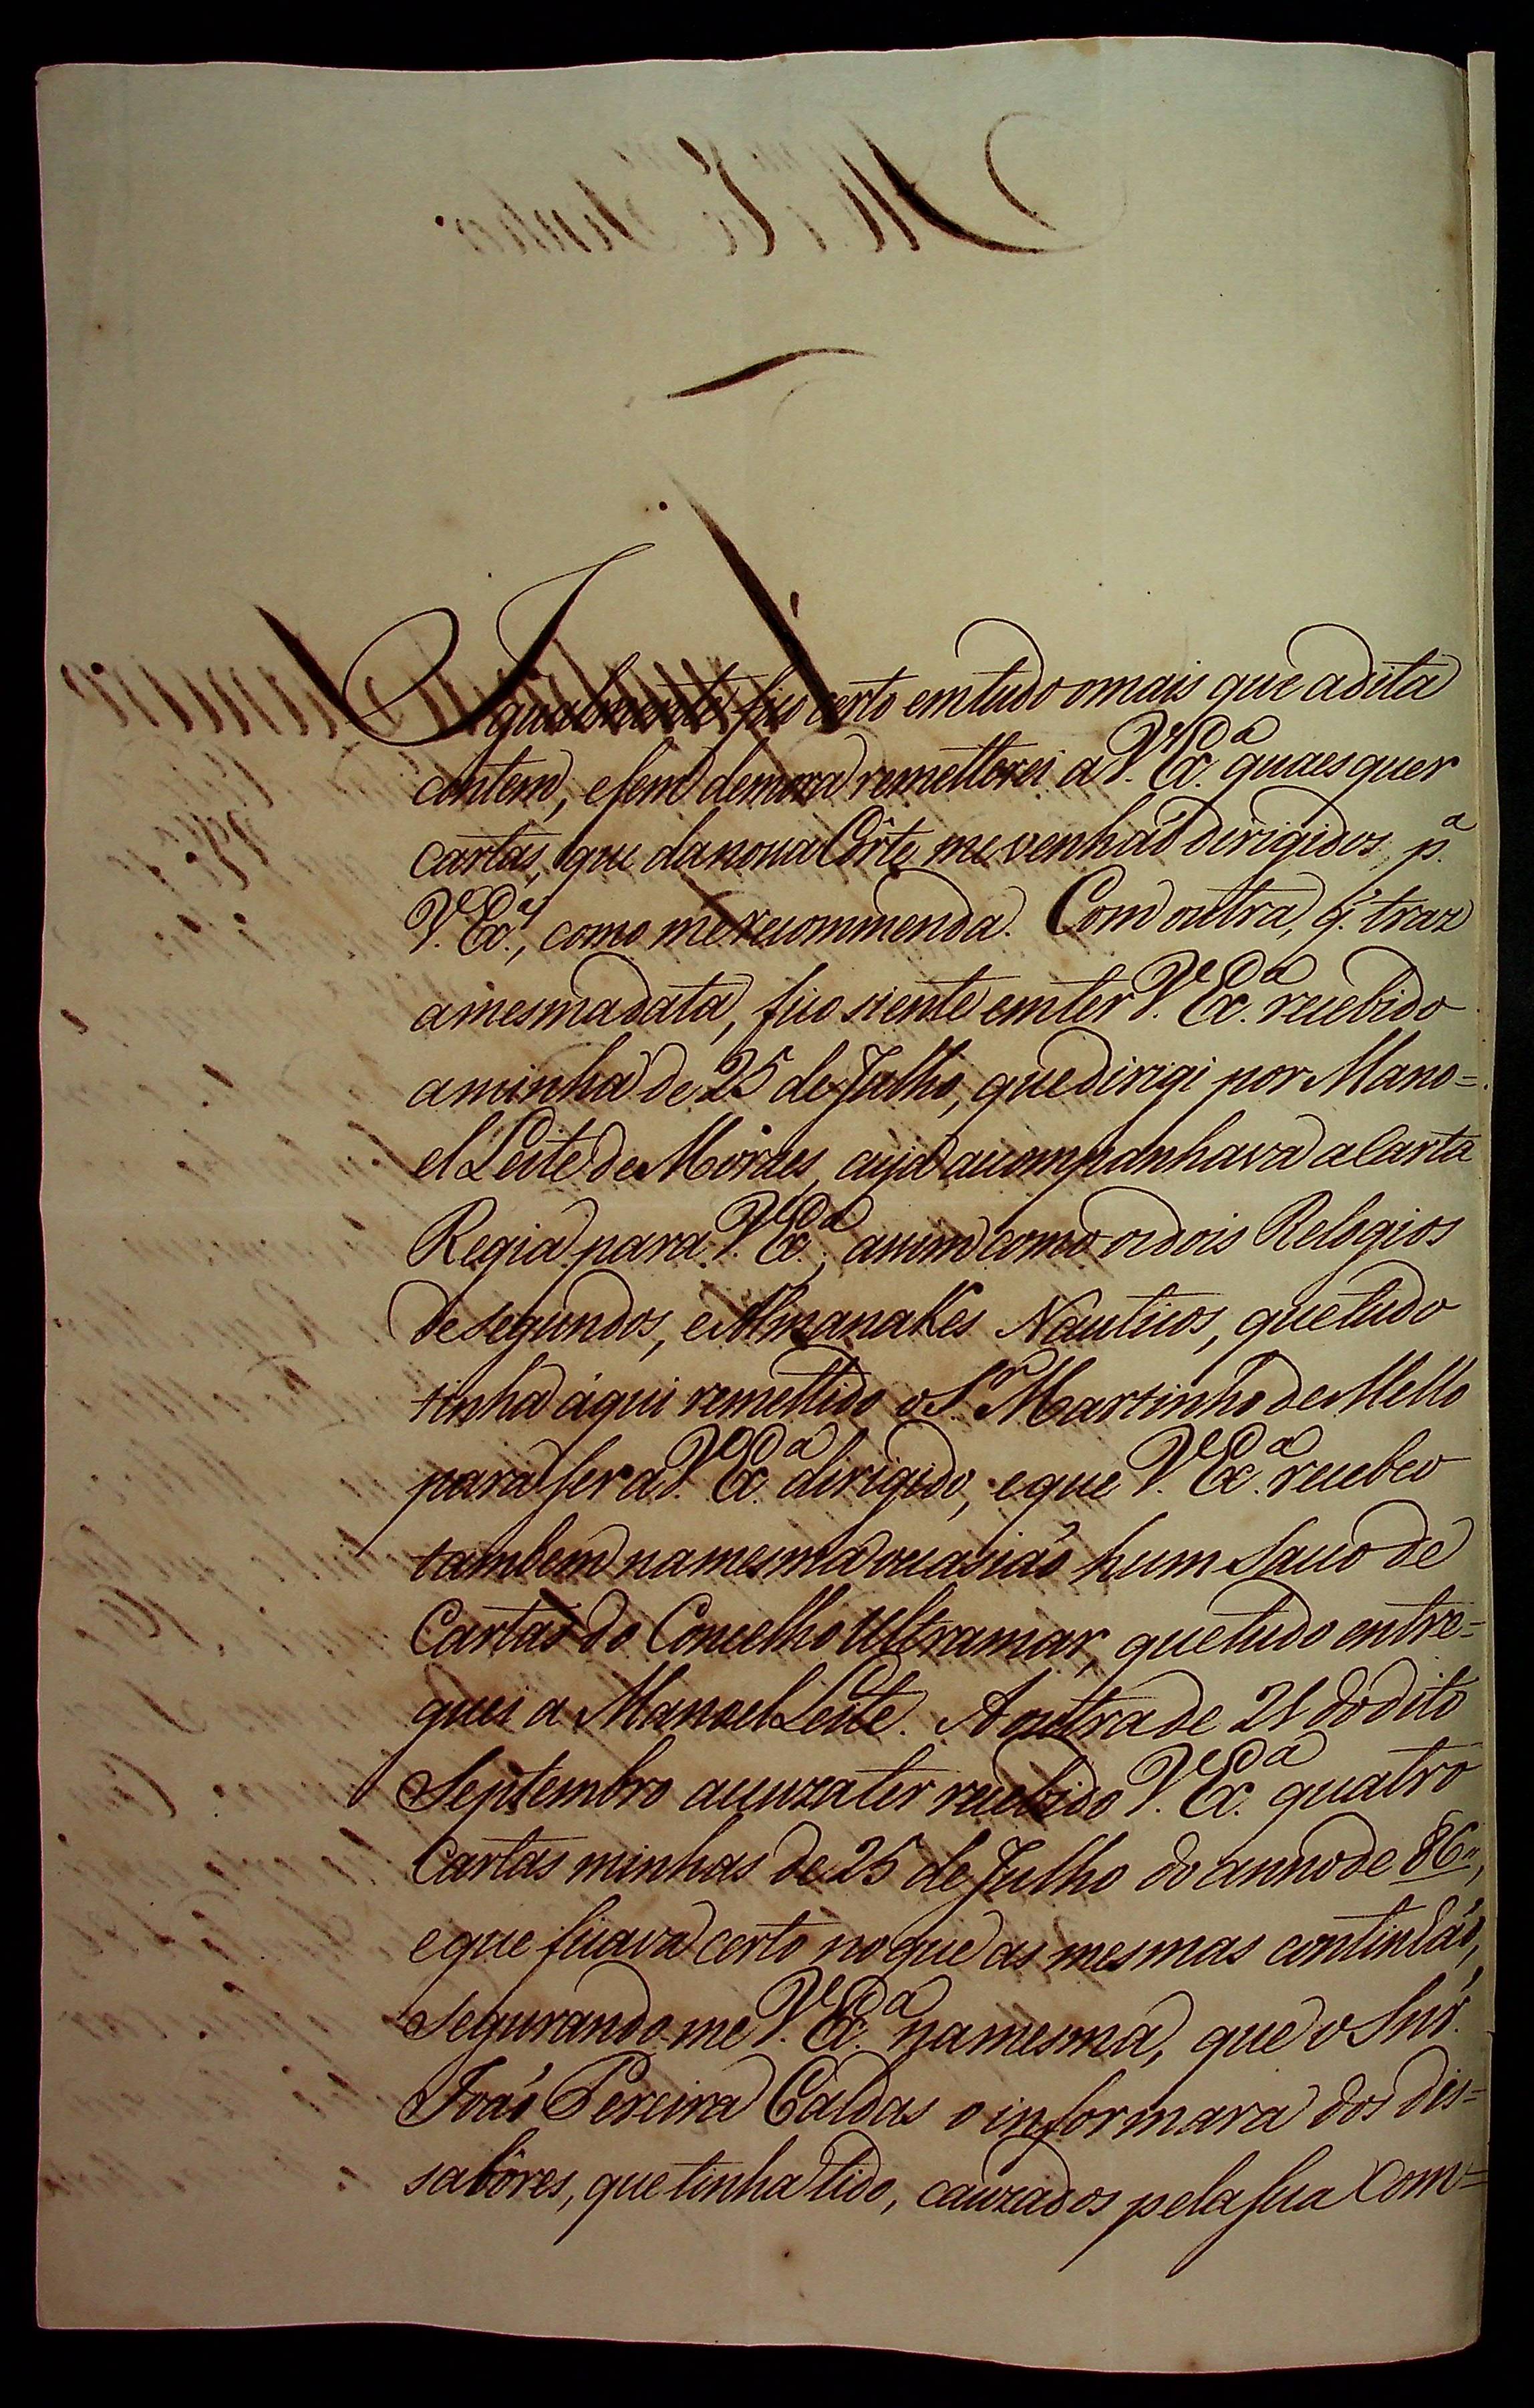 Igualmente fico certo em tudo o mais que a dita
contem, e sem demora remetterei a V. Ex.ª quaes quer
cartas, que da nova Côrte me venhaõ dirigidos p.ª
V. Ex.ª, como me recommenda. Com outra, q̃. traz
a mesma data, fico siente em ter V. Ex.ª recebido
a minha de 25 de Julho, que dirigi por Mano=
el Leite de Moraes, cuja acompanhava a Carta
Regia para V. Ex.ª, assim como os dois Relogios
de segundos, e Almanakes Nauticos, que tudo
tinha áqui remettido o S.r Martinho de Mello
para ser a V. Ex.ª dirigido, e que V. Ex.ª recebeo
tambem na mesma occasiaõ hum Saco de
Cartas do Concelho Ultramar, que tudo entre=
guei a Manoel Leite. A outra de 21 do dito
Septembro accuza ter recebido V. Ex.ª quatro
Cartas minhas de 25 de Julho do anno de 86,,
e que ficava certo no que as mesmas continhaõ,
segurando-me V. Ex.ª na mesma, que o Snr.
Joaõ Pereira Caldas o informara dos dis=
sabôres, que tinha tido, cauzados pela sua Com=